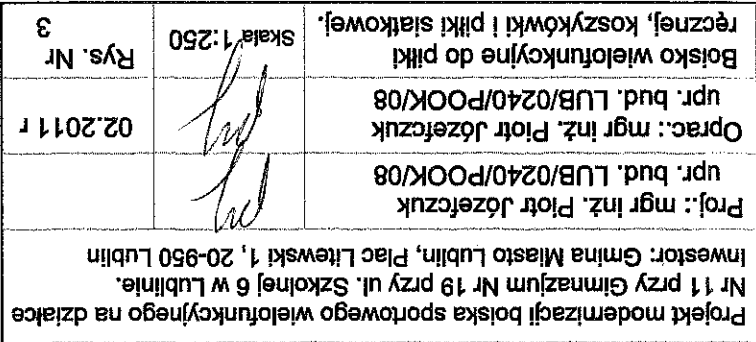 Projekt modernizacji boiska sportowego wielofunkcyjnego na działce
Nr 11 przy Gimnazjum Nr 19 przy ul. Szkolnej 6 w Lublinie.
Inwestor: Gmina Miasto Lublin, Plac Litewski 1, 20-950 Lublin
Proj.: mgr inż. Piotr Józefczuk
upr. bud. LUB/0240/POOK/08
Oprac.: mgr inż. Piotr Józefczuk
upr. bud. LUB/0240/POOK/08
02.2011 r
Boisko wielofunkcyjne do piłki
ręcznej, koszykówki i piłki siatkowej.
Skala 1:250
Rys. Nr
3